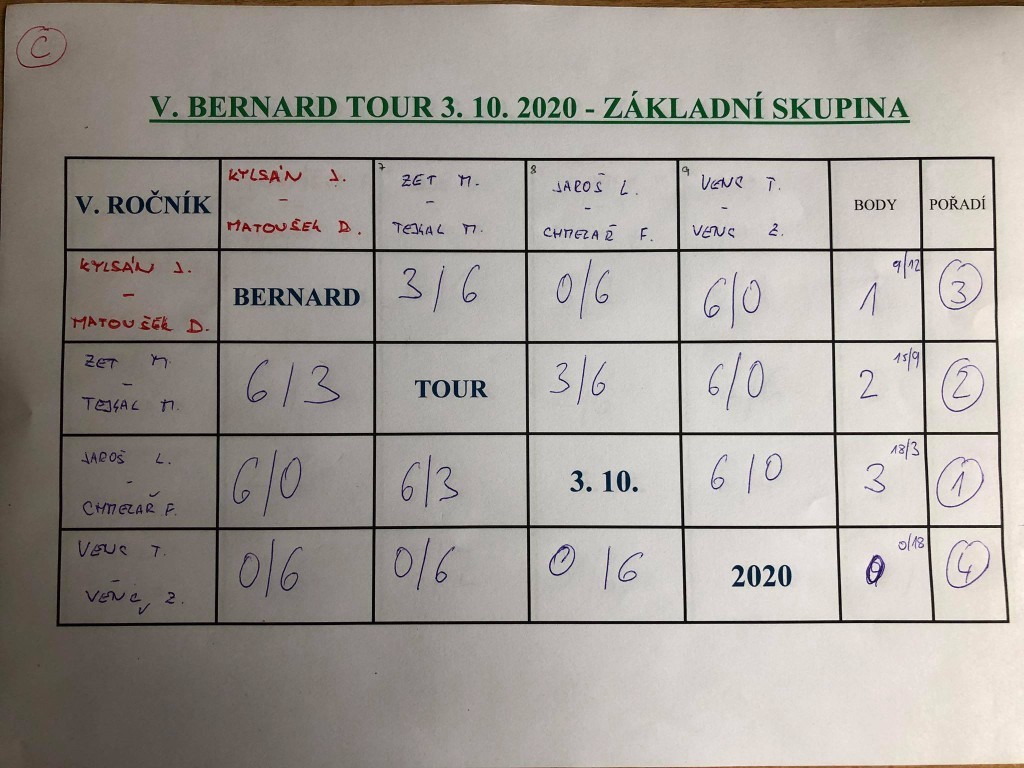 Č
V. BERNARD TOUR 3. 10. 2020 - ZÁKLADNÍ SKUPINA
V. ROČNÍK
KYLSÁN J.
-
MATOUŠEK D.
7
ZET M.
-
TEJKAL M.
8
JAROŠ L.
-
CHMELAŘ F.
9
VENC T.
-
VENC Z.
BODY
POŘADÍ
KYLSÁN J.
-
MATOUŠEK D.
BERNARD
3/6
0/6
6/0
1
9/12
3
ZET M.
-
TEJKAL M.
6/3
TOUR
3/6
6/0
2
15/9
2
JAROŠ L.
-
CHMELAŘ F.
6/0
6/3
3. 10.
6/0
3
18/3
1
VENC T.
-
VENC Z.
0/6
0/6
0/6
2020
0
0/18
4